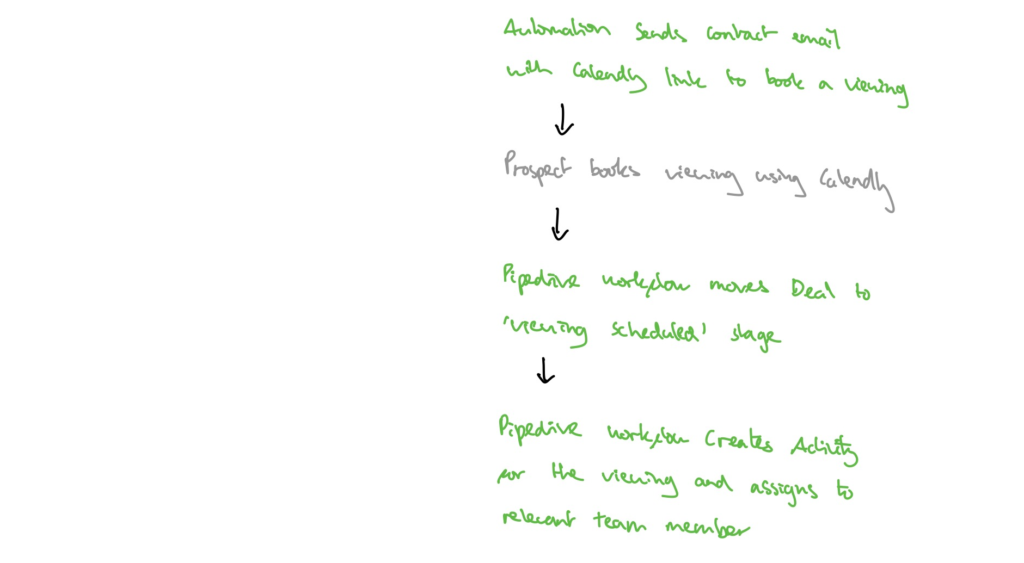 Automation sends contact email
with Calendly link to book a viewing
Prospect books viewing using Calendly
Pipedrive workflow moves Deal to
'viewing scheduled' stage
Pipedrive workflow creates Activity
for the viewing and assigns to
relevant team member